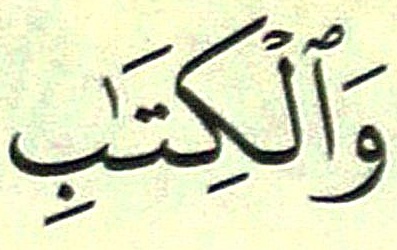 وَٱلْكِتَـٰبِ